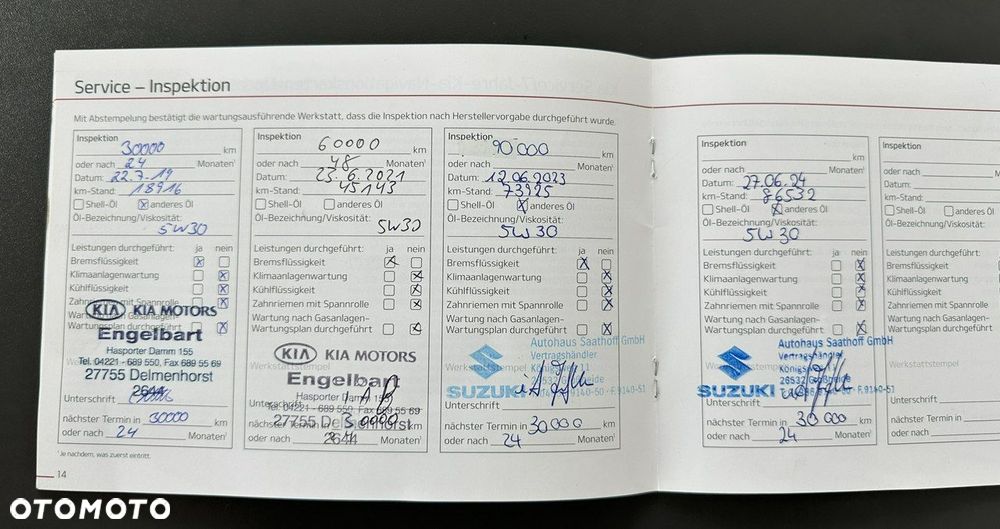 Service – Inspektion
Mit Abstempelung bestätigt die wartungsausführende Werkstatt, dass die Inspektion nach Herstellervorgabe durchgeführt wurde.
Inspektion
30000 km
oder nach 24 Monaten¹
Datum: 22.7.19
km-Stand: 18916
Shell-Öl x anderes Öl
Öl-Bezeichnung/Viskosität:
5W30
Leistungen durchgeführt: ja nein
Bremsflüssigkeit x
Klimaanlagenwartung x
Kühlflüssigkeit x
Zahnriemen mit Spannrolle x
KIA KIA MOTORS
Wartungsplan durchgeführt x
Engelbart
Hasporter Damm 155
Tel. 04221 - 689 550, Fax 689 55 69
27755 Delmenhorst
2644
Unterschrift
nächster Termin in 30000 km
oder nach 24 Monaten¹
¹Je nachdem, was zuerst eintritt.
14
Inspektion
60000 km
oder nach 48 Monaten¹
Datum: 23.6.2021
km-Stand: 45143
Shell-Öl anderes Öl
Öl-Bezeichnung/Viskosität:
5W30
Leistungen durchgeführt: ja nein
Bremsflüssigkeit x
Klimaanlagenwartung x
Kühlflüssigkeit x
Zahnriemen mit Spannrolle x
Wartung nach Gasanlagen-
Wartungsplan durchgeführt x
KIA KIA MOTORS
Engelbart
Unterschrift
Tel. 04221 - 689 550, Fax 689 55 69
27755 Delmenhorst
30000 km
2644
oder nach Monaten¹
Inspektion
90 000 km
oder nach Monaten¹
Datum: 12.06.2023
km-Stand: 73925
Shell-Öl x anderes Öl
Öl-Bezeichnung/Viskosität:
5W30
Leistungen durchgeführt: ja nein
Bremsflüssigkeit x
Klimaanlagenwartung x
Kühlflüssigkeit x
Zahnriemen mit Spannrolle x
Wartung nach Gasanlagen-
Wartungsplan durchgeführt x
Autohaus Saathoff GmbH
Vertragshändler
SUZUKI
Unterschrift
nächster Termin in 30000 km
oder nach 24 Monaten¹
Inspektion
km
oder nach Monaten¹
Datum: 27.06.24
km-Stand: 86532
Shell-Öl x anderes Öl
Öl-Bezeichnung/Viskosität:
5W30
Leistungen durchgeführt: ja nein
Bremsflüssigkeit x
Klimaanlagenwartung x
Kühlflüssigkeit x
Zahnriemen mit Spannrolle x
Wartung nach Gasanlagen-
Wartungsplan durchgeführt x
Autohaus Saathoff GmbH
Vertragshändler
SUZUKI
Unterschrift
nächster Termin in 30 000 km
oder nach 24 Monaten¹
Inspektion
oder nach
Datum:
km-Stand:
Shell-Öl anderes Öl
Öl-Bezeichnung/Viskosität:
Leistungen durchgeführt:
Bremsflüssigkeit
Klimaanlagenwartung
Kühlflüssigkeit
Zahnriemen mit Spannrolle
Wartung nach Gasanlagen-
Wartungsplan durchgeführt
Werkstattstempel
Unterschrift
nächster Termin in
oder nach
OTOMOTO